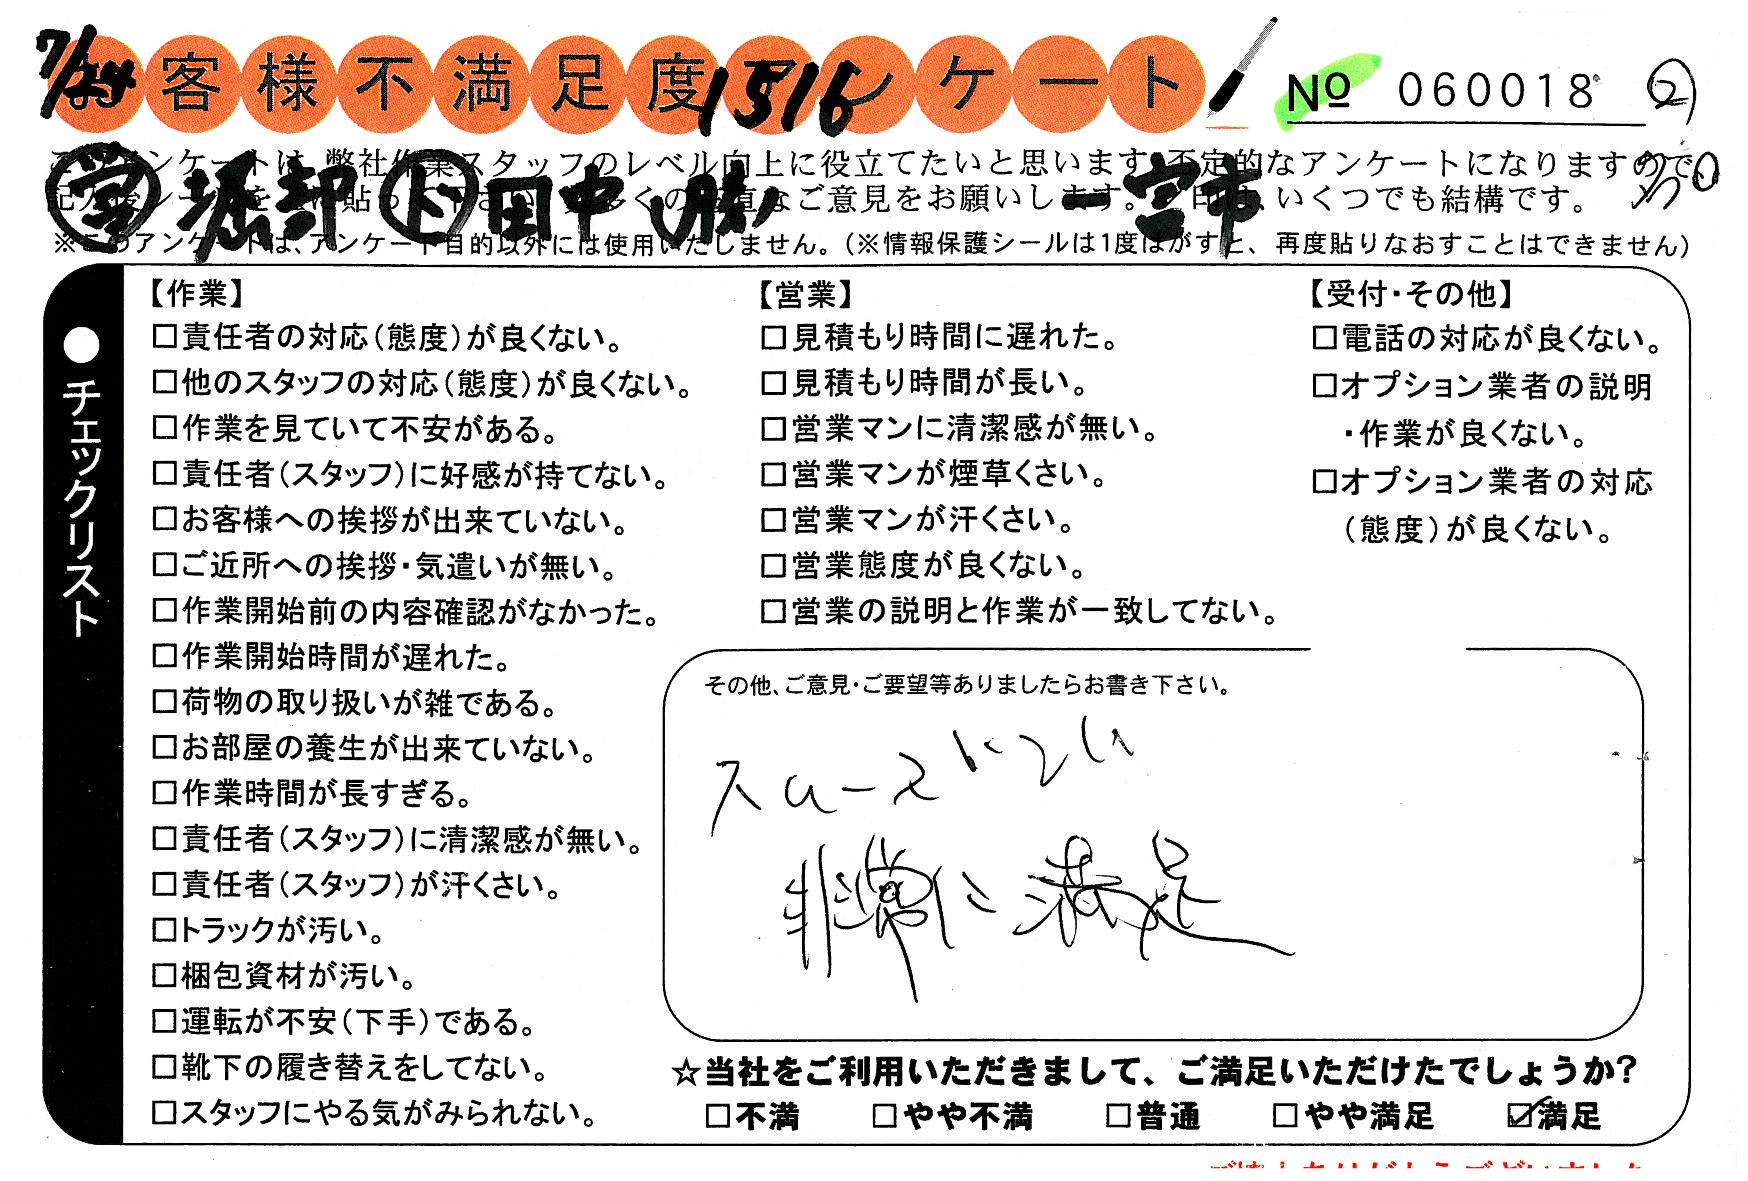 7/24 お客様不満足度アンケート 1516 No 060018 ②
このアンケートは、弊社作業スタッフのレベル向上に役立てたいと思います。否定的なアンケートになりますので、
営 堀部 ド 田中 一宮市
記入後シールを 貼って下さい。多くの 直なご意見をお願いします。 印は、いくつでも結構です。
※このアンケートは、アンケート目的以外には使用いたしません。(※情報保護シールは1度はがすと、再度貼りなおすことはできません)
●チェックリスト
【作業】
□責任者の対応(態度)が良くない。
□他のスタッフの対応(態度)が良くない。
□作業を見ていて不安がある。
□責任者(スタッフ)に好感が持てない。
□お客様への挨拶が出来ていない。
□ご近所への挨拶・気遣いが無い。
□作業開始前の内容確認がなかった。
□作業開始時間が遅れた。
□荷物の取り扱いが雑である。
□お部屋の養生が出来ていない。
□作業時間が長すぎる。
□責任者(スタッフ)に清潔感が無い。
□責任者(スタッフ)が汗くさい。
□トラックが汚い。
□梱包資材が汚い。
□運転が不安(下手)である。
□靴下の履き替えをしてない。
□スタッフにやる気がみられない。
【営業】
□見積もり時間に遅れた。
□見積もり時間が長い。
□営業マンに清潔感が無い。
□営業マンが煙草くさい。
□営業マンが汗くさい。
□営業態度が良くない。
□営業の説明と作業が一致してない。
【受付・その他】
□電話の対応が良くない。
□オプション業者の説明
・作業が良くない。
□オプション業者の対応
(態度)が良くない。
その他、ご意見・ご要望等ありましたらお書き下さい。
非常に満足
☆当社をご利用いただきまして、ご満足いただけたでしょうか?
□不満 □やや不満 □普通 □やや満足 ☑満足